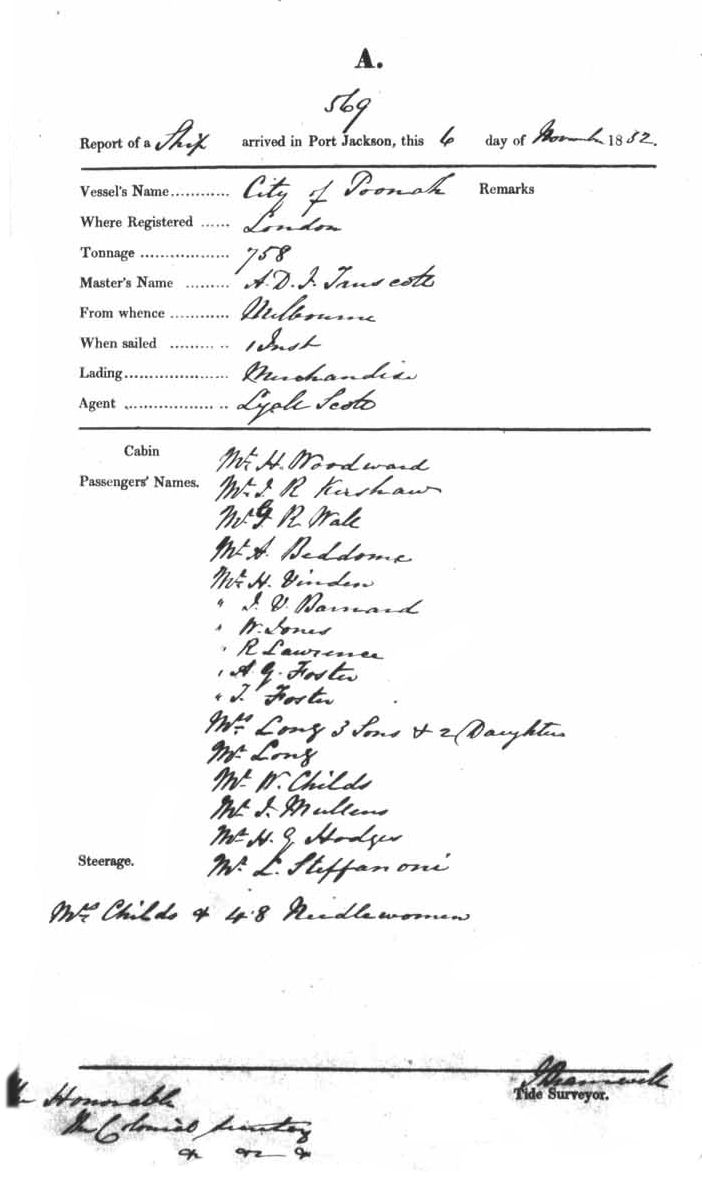 A.
569
Report of a Ship arrived in Port Jackson, this 6 day of November 1852.
Vessel's Name............ City of Poonah Remarks
Where Registered ...... London
Tonnage .................. 758
Master's Name ......... A. D. J. Truscott
From whence ............ Melbourne
When sailed ......... .. 1 Inst
Lading..................... Merchandise
Agent ................... .. Lyall Scott
Cabin Mr. H. Woodward
Passengers' Names. Mr. J R Kershaw
Mr. G R Wall
Mr. A. Beddome
Mr. H. Vinden
" J. V. Barnard
" W. Jones
" R Lawrence
" A. G. Foster
" T. Foster
Mrs. Long 3 Sons & 2 Daughters
Mr. Long
Mr. W. Childs
Mr. J. Mullens
Mr. H. G. Hodges
Steerage. Mr. L. Steffanoni
Mrs. Childs & 48 Needlewomen
Tide Surveyor.
The Honorable
The Colonial Secretary
&c &c &c